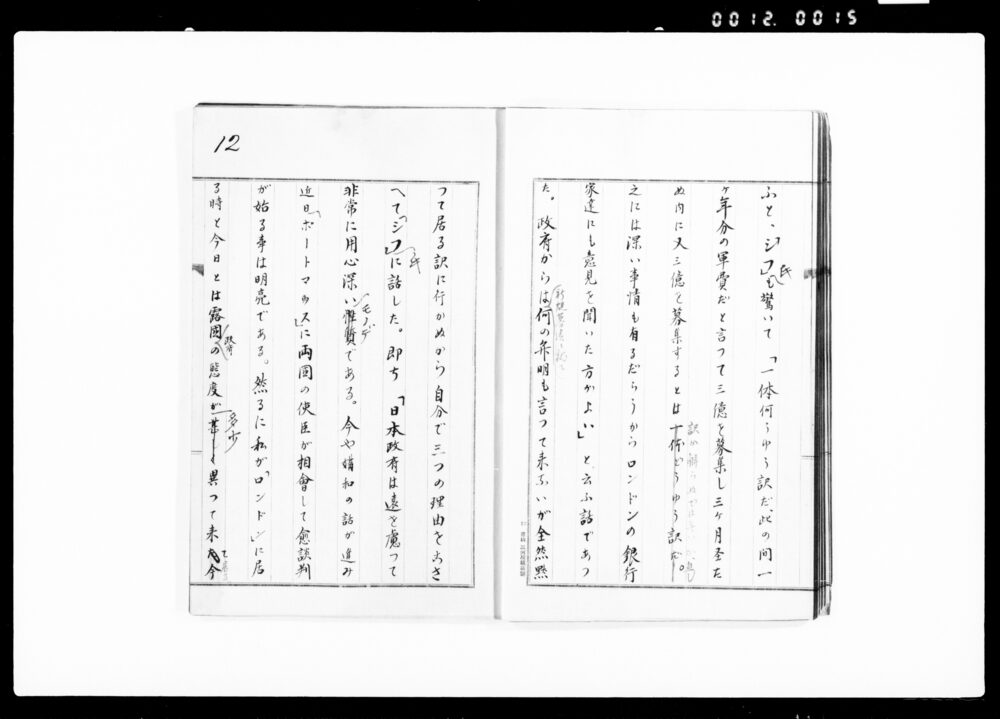 0012.0015
ふと、「シフ」氏も驚いて「一体何うゆう訳だ、此の間一
ヶ年分の軍費だと言つて三億を募集し三ヶ月至た
ぬ内に又三億を募集するとは一体どうゆう訳だ。
之には深い事情も有るだらうからロンドンの銀行
家達にも意見を聞いた方がよい」と云ふ話であつ
た。政府からは何の弁明も言つて来ないが全然黙
12
つて居る訳に行かぬから自分で三つの理由をこさ
へて「シフ」氏に話した。即ち「日本政府は遠を慮つて
非常に用心深いモノデ性質である。今や媾和の話が進み
近日「ポートマウス」に両国の使臣が相會して愈談判
が始る事は明亮である。然るに私が「ロンドン」に居
る時と今日とは露国政府の態度が多少異つて来て今